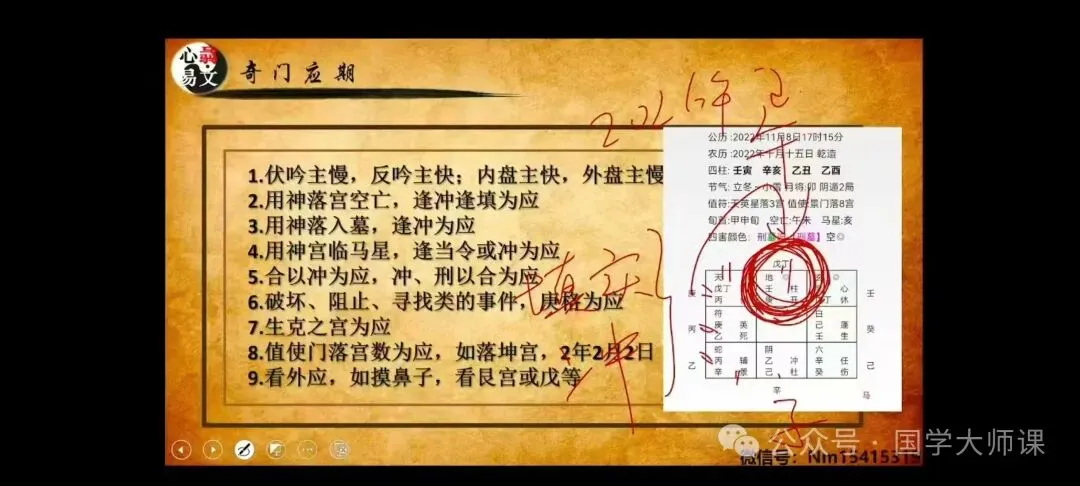 心易
易文
奇门应期
1.伏吟主慢，反吟主快；内盘主快，外盘主慢
2.用神落宫空亡，逢冲逢填为应
3.用神落入墓，逢冲为应
4.用神宫临马星，逢当令或冲为应
5.合以冲为应，冲、刑以合为应
6.破坏、阻止、寻找类的事件，庚格为应
7.生克之宫为应
8.值使门落宫数为应，如落坤宫，2年2月2日
9.看外应，如摸鼻子，看艮宫或戊等
2026年
午
填实
冲
子
公历:2022年11月8日17时15分
农历:2022年十月十五日 乾造
四柱: 壬寅 辛亥 乙丑 乙酉
节气: 立冬~小雪 月将:卯 阴遁2局
值符:天英星落3宫 值使:景门落8宫
旬首:甲申旬 空亡:午未 马星:亥
四害颜色: 刑墓 空◎
戊丁
天 地
戊丁 壬 柱 心
丙 休
庚 壬
符 白
庚 英 己 蓬
乙 死 壬 生
丙 癸
蛇 阴 六
丙 辅 乙 冲 辛 任
辛 景 己 杜 癸 伤
乙 己
辛 马
公众号·国学大师课
微信号：Nm15415319